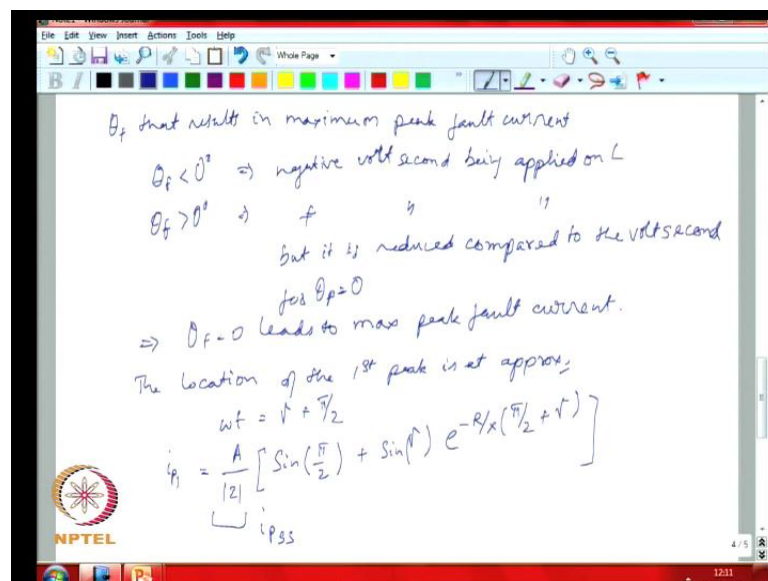 File Edit View Insert Actions Tools Help
Whole Page
B I
θf that results in maximum peak fault current
θf < 0° ⇒ negative volt second being applied on L
θf > 0° ⇒ + " "
but it is reduced compared to the volt second
for θf = 0
⇒ θf = 0 leads to max peak fault current.
The location of the 1st peak is at approx:
wt = γ + π/2
ip1 = A/|Z| [ Sin(π/2) + Sin(γ) e^-R/x(π/2 + γ) ]
ipss
NPTEL
4 / 5
12:11